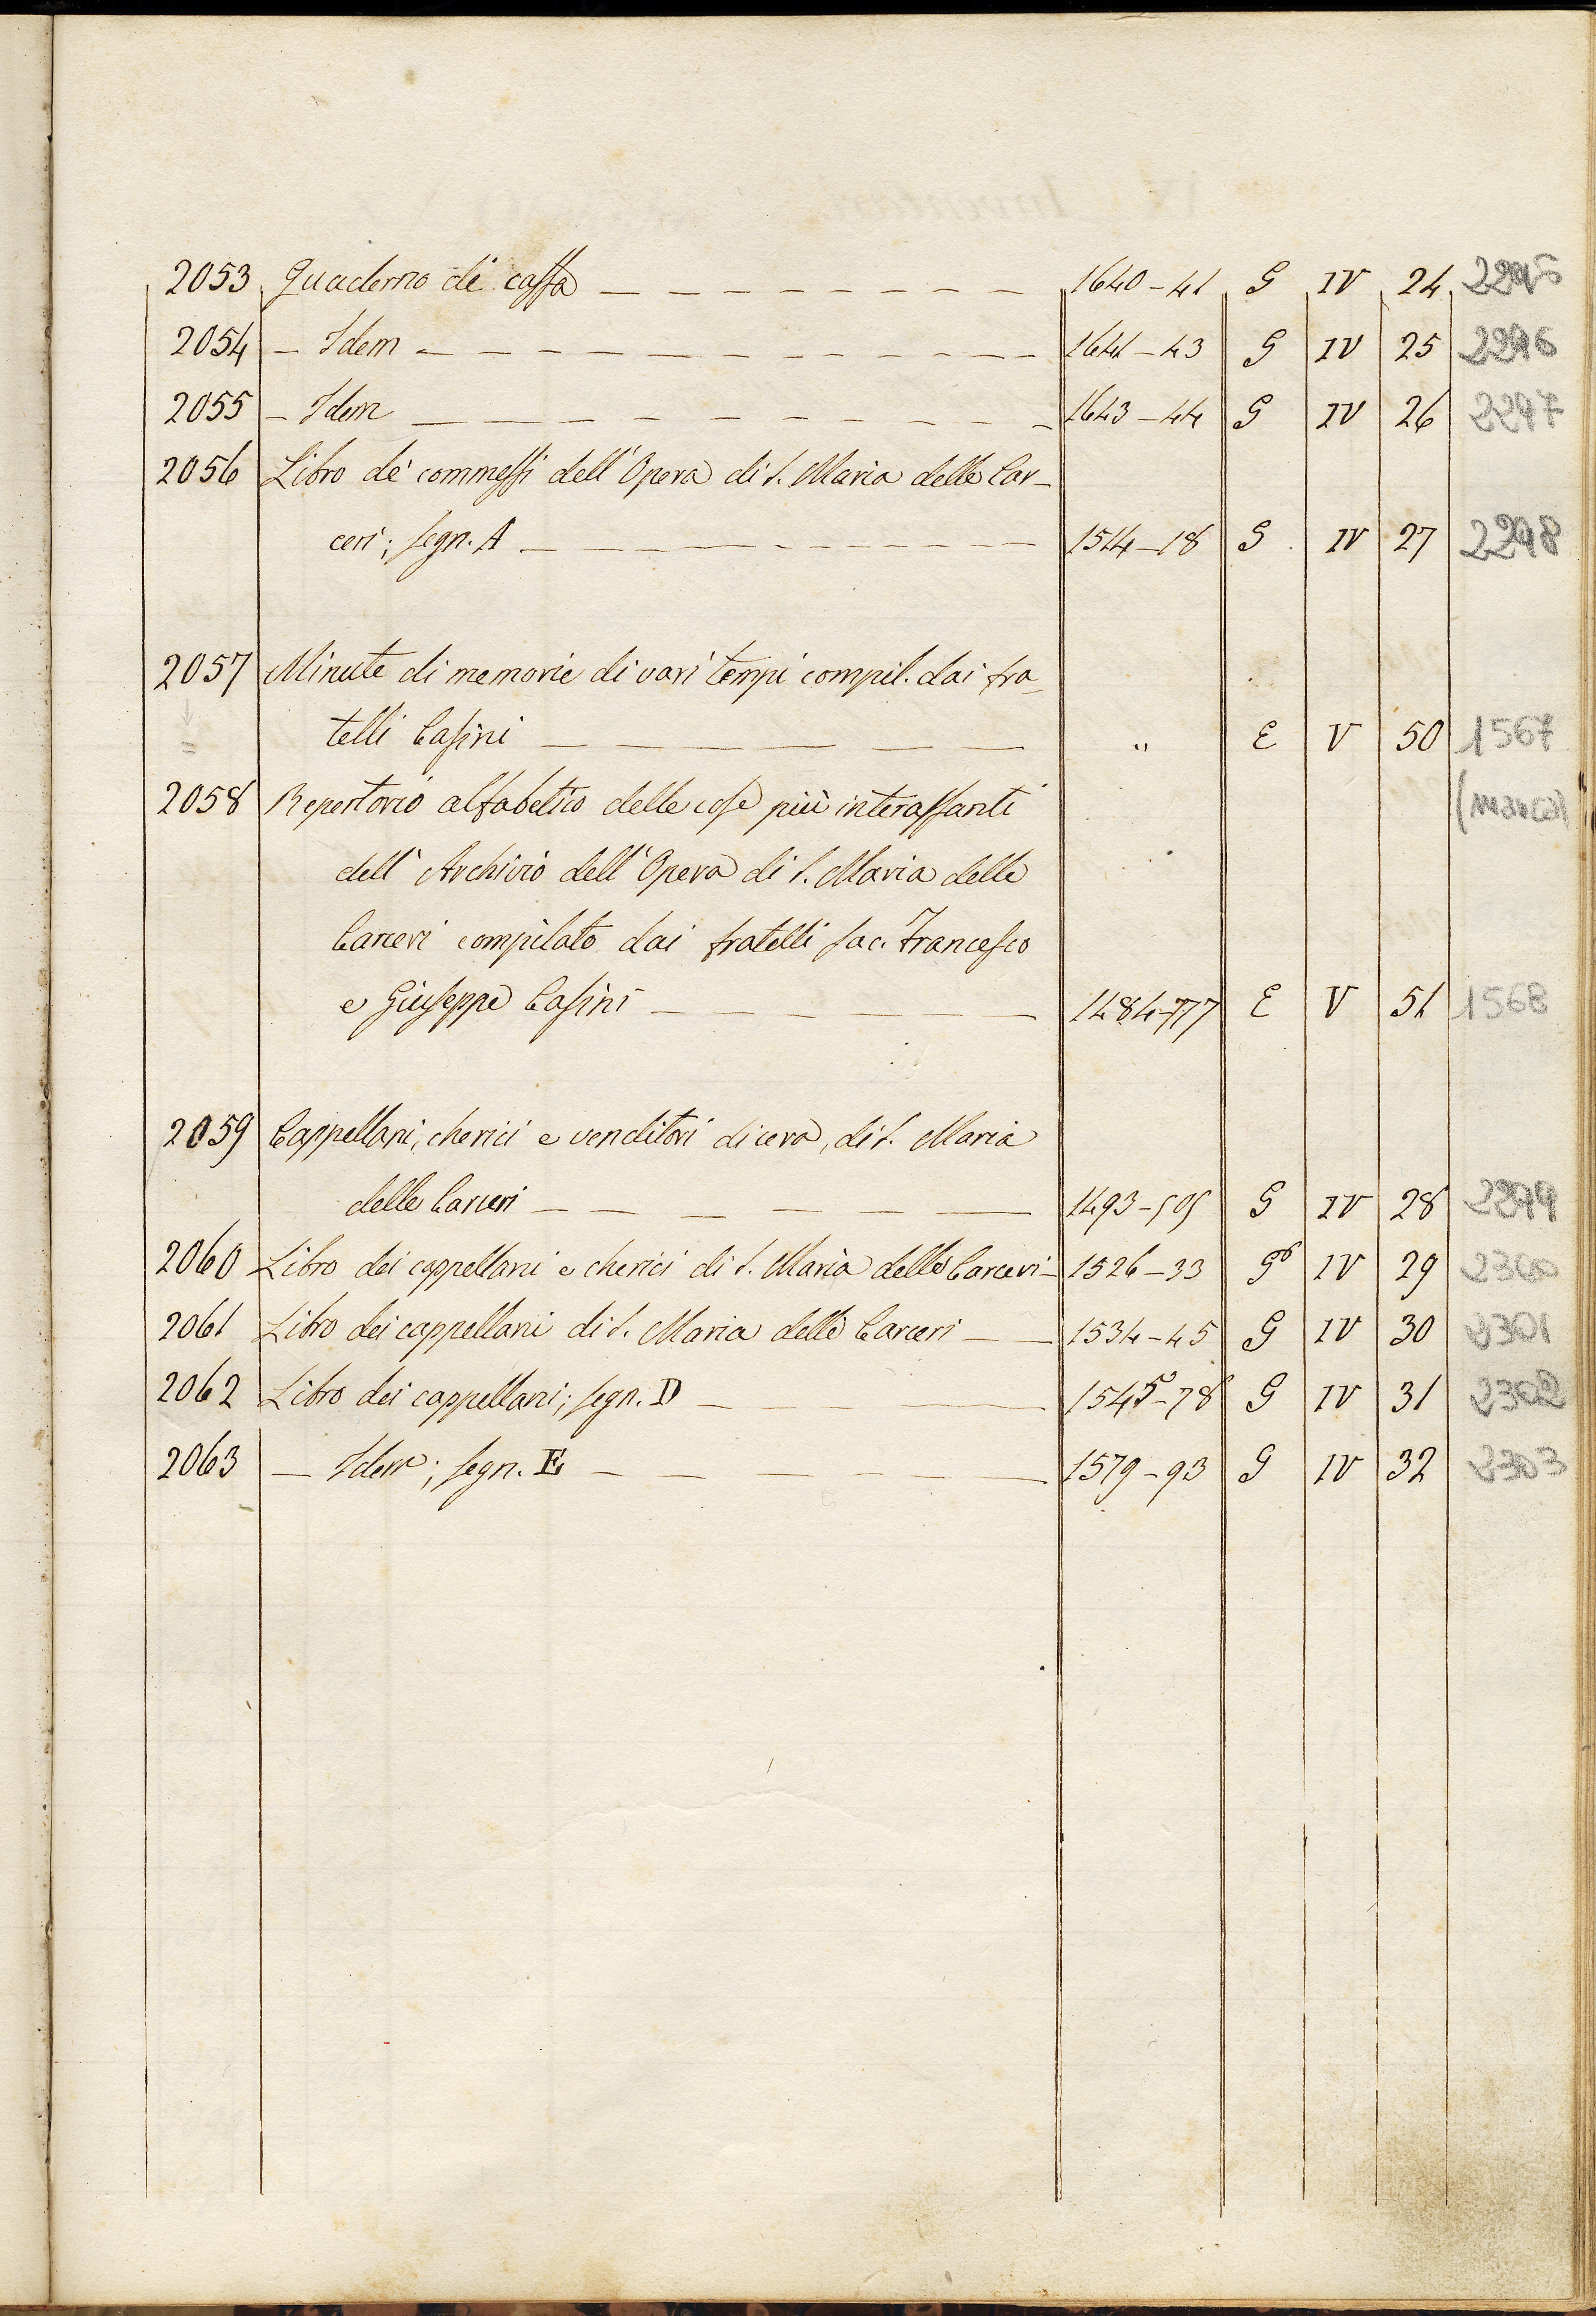 2053 Quaderno di cassa 1640-41 G IV 24 2295
2054 - Idem 1641-43 G IV 25 2296
2055 - Idem 1643-44 G IV 26 2297
2056 Libro de' commessi dell'Opera di S. Maria delle Car-
ceri; segn. A 1514-18 G IV 27 2298
2057 Minute di memorie di vari tempi compil. dai fra-
telli Casini " E V 50 1567
2058 Repertorio alfabetico delle cose più interassanti (manca)
dell'Archivio dell'Opera di S. Maria delle
Carceri compilato dai fratelli sac. Francesco
e Giuseppe Casini 1484-777 E V 51 1568
2059 Cappellani, cherici e venditori di cera, di S. Maria
delle Carceri 1493-505 G IV 28 2299
2060 Libro dei cappellani e cherici di S. Maria delle Carceri- 1526-33 G IV 29 2300
2061 Libro dei cappellani di S. Maria delle Carceri 1534-45 G IV 30 2301
2062 Libro dei cappellani; segn. D 1545-78 G IV 31 2302
2063 - Idem; segn. E 1579-93 G IV 32 2303